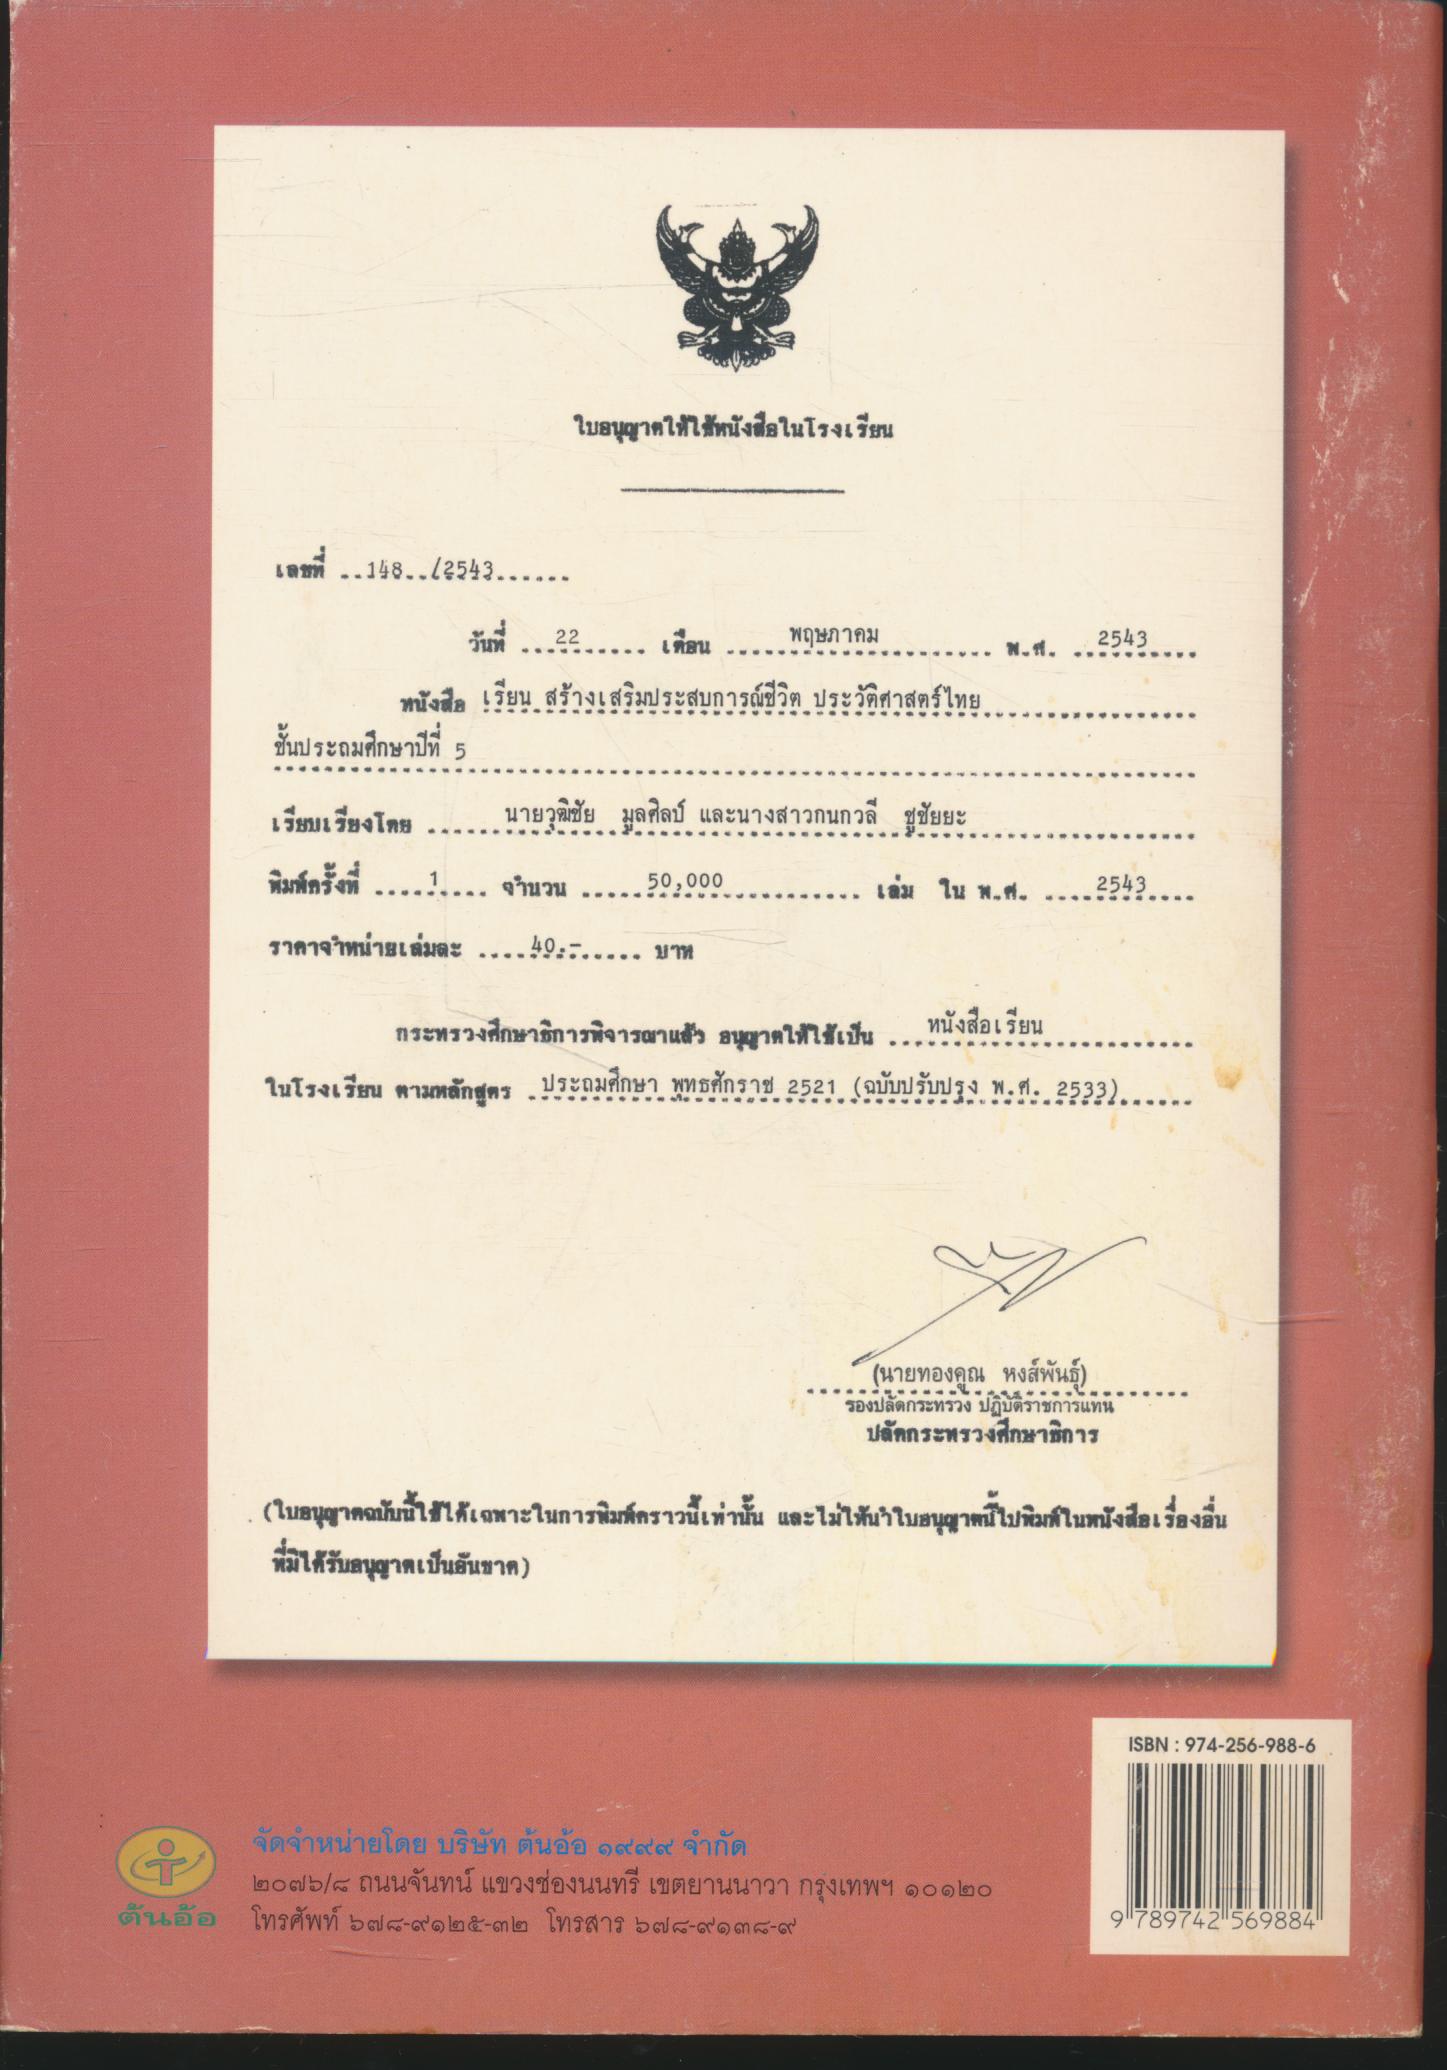 ใบอนุญาตให้ใช้หนังสือในโรงเรียน
เลขที่ ..148../2543......
วันที่ ...22....... เดือน .......พฤษภาคม....... พ.ศ. ..2543....
หนังสือ เรียน สร้างเสริมประสบการณ์ชีวิต ประวัติศาสตร์ไทย
ชั้นประถมศึกษาปีที่ 5
เรียบเรียงโดย ......นายวุฒิชัย มูลศิลป์ และนางสาวกนกวลี ชูชัยยะ
พิมพ์ครั้งที่ ....1.... จำนวน .....50,000......... เล่ม ใน พ.ศ. ....2543....
ราคาจำหน่ายเล่มละ ....40.-..... บาท
กระทรวงศึกษาธิการพิจารณาแล้ว อนุญาตให้ใช้เป็น ...หนังสือเรียน.........
ในโรงเรียน ตามหลักสูตร ประถมศึกษา พุทธศักราช 2521 (ฉบับปรับปรุง พ.ศ. 2533)
(นายทองคูณ หงส์พันธุ์)
รองปลัดกระทรวง ปฏิบัติราชการแทน
ปลัดกระทรวงศึกษาธิการ
(ใบอนุญาตฉบับนี้ใช้ได้เฉพาะในการพิมพ์คราวนี้เท่านั้น และไม่ให้นำใบอนุญาตนี้ไปพิมพ์ในหนังสือเรื่องอื่น
ที่มิได้รับอนุญาตเป็นอันขาด)
ISBN : 974-256-988-6
9 789742 569884
ต้นอ้อ
จัดจำหน่ายโดย บริษัท ต้นอ้อ ๑๙๙๙ จำกัด
๒๐๗๖/๘ ถนนจันทน์ แขวงช่องนนทรี เขตยานนาวา กรุงเทพฯ ๑๐๑๒๐
โทรศัพท์ ๖๗๘-๙๑๒๕-๓๒ โทรสาร ๖๗๘-๙๑๓๘-๙